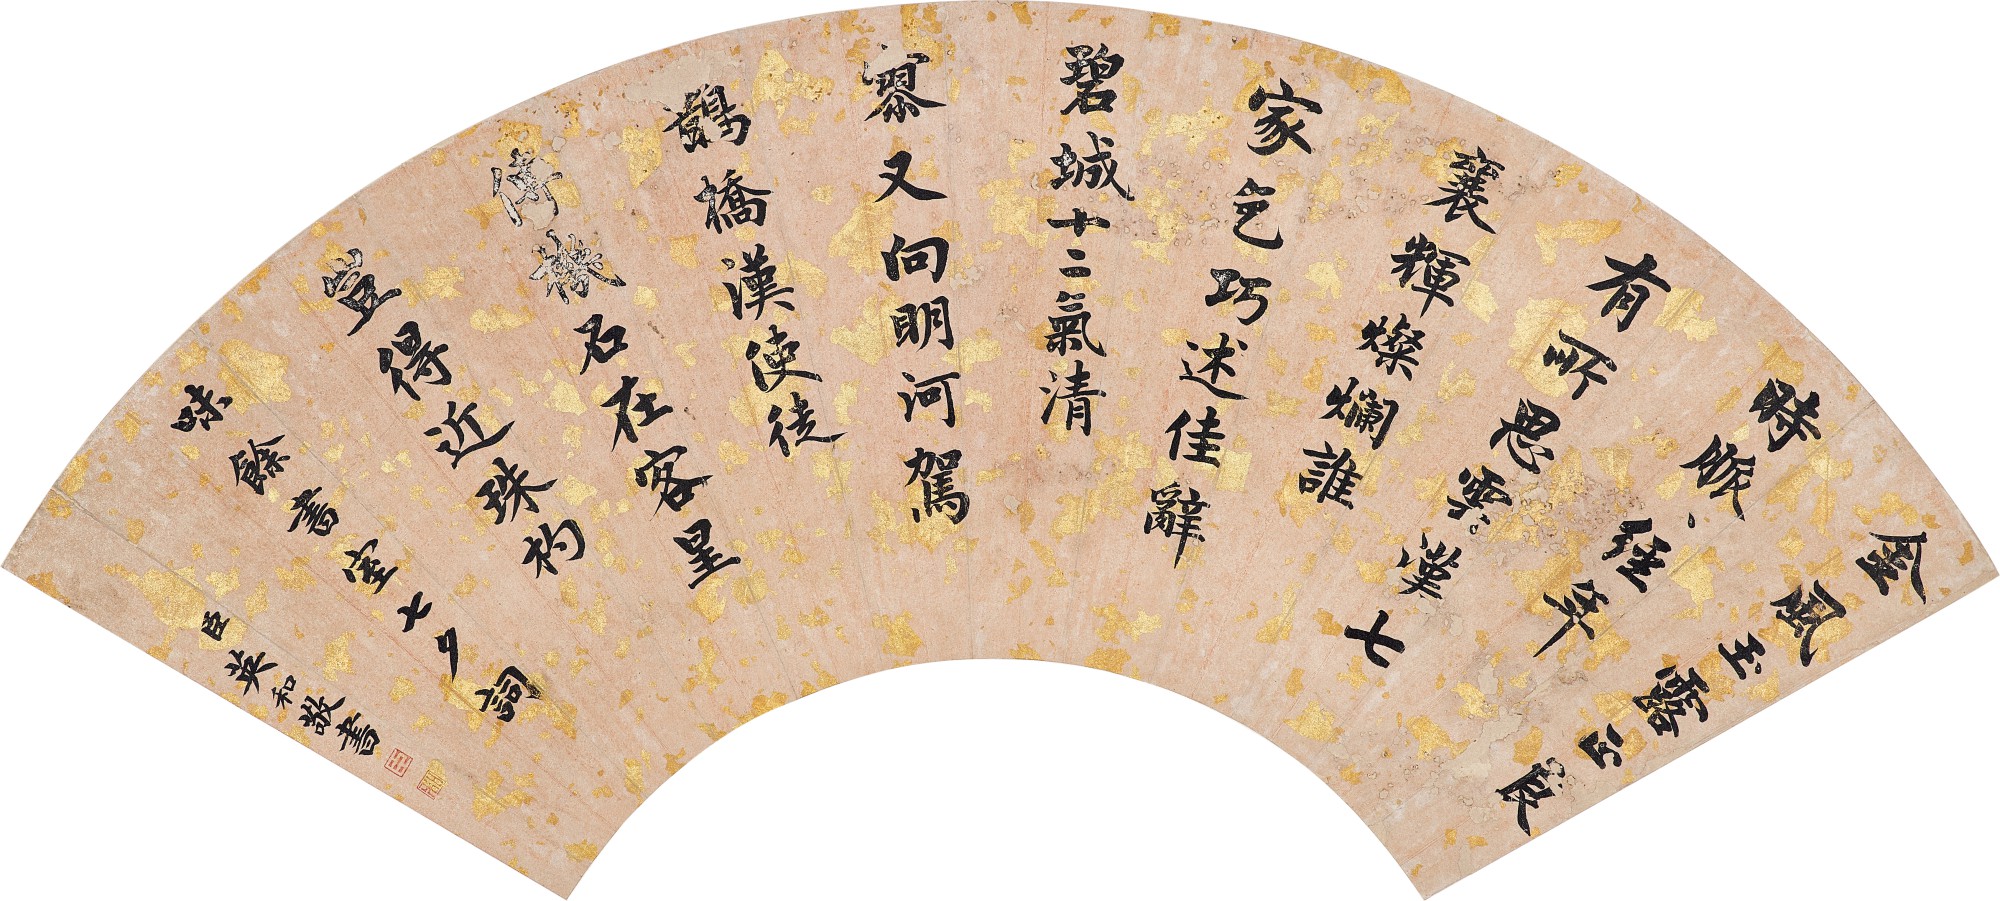 金風玉露正良
時脈〻經年
有所思雲漢七
襄輝燦爛誰
家乞巧述佳辭
碧城十二氣清
寥又向明河駕
鵲橋漢使徒
傳機石在客星
豈得近珠杓
味餘書室七夕詞
臣英和敬書